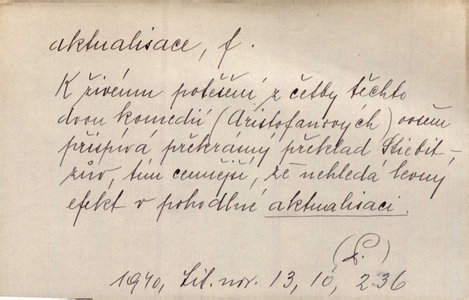 aktualisace, f.
K živému potěšení z četby těchto
dvou komedií (Aristofanových) ovšem
přispívá překrásný překlad Stiebit-
zův, tím cennější, že nehledá levný
efekt v pohodlné aktualisaci.
1940, Lit. nov. 13, 10, 236